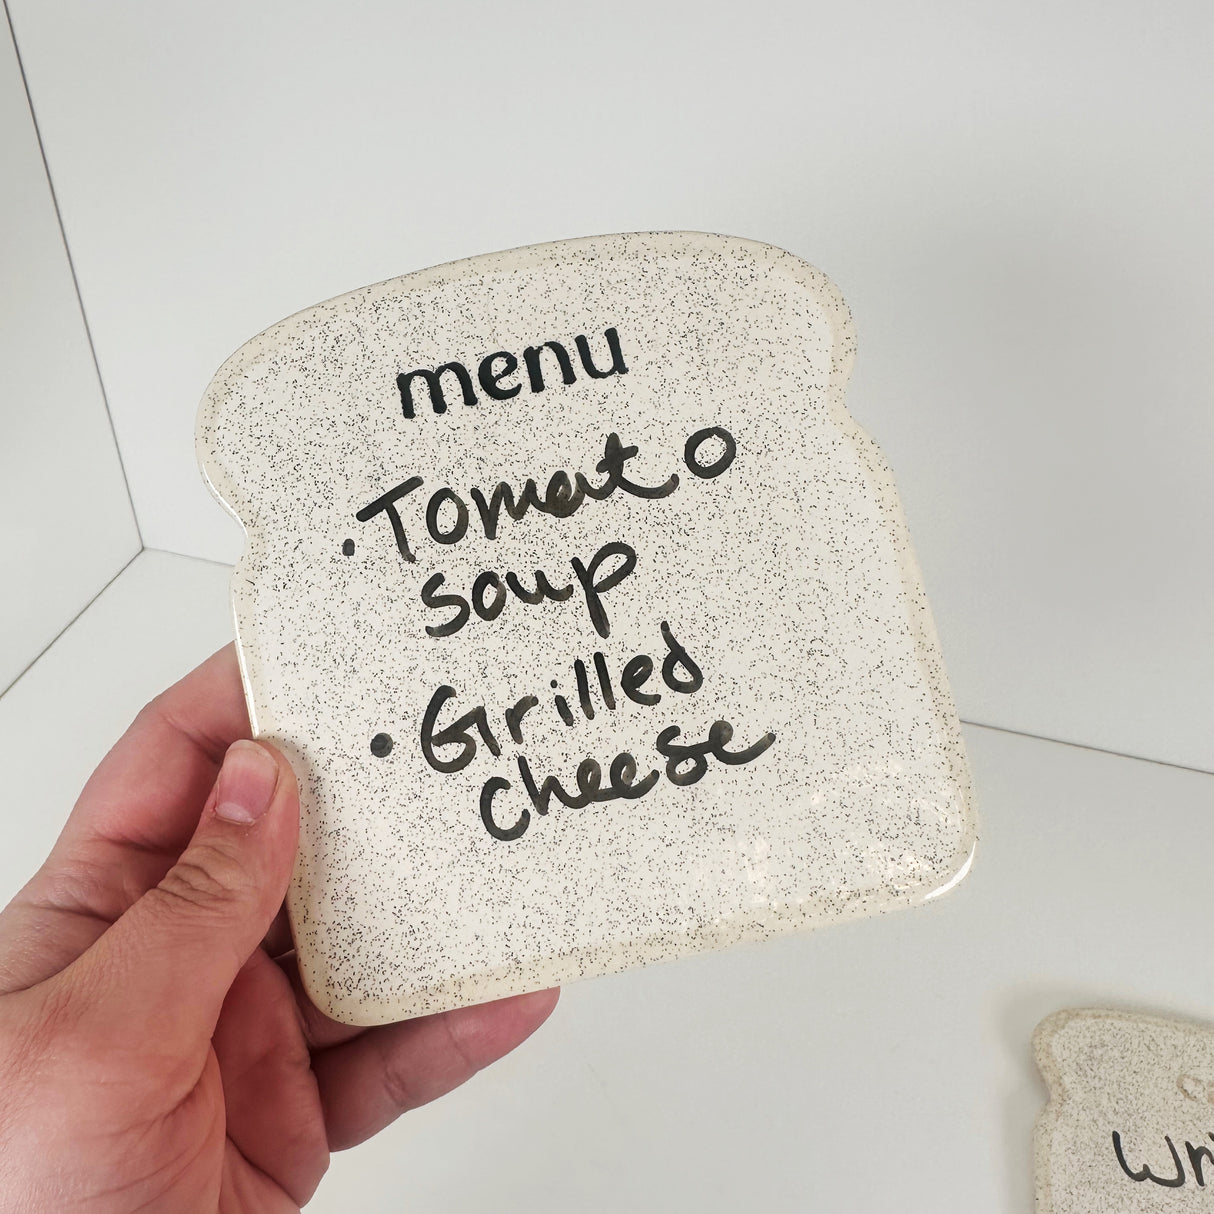 menu
· Tomato
soup
• Grilled
cheese